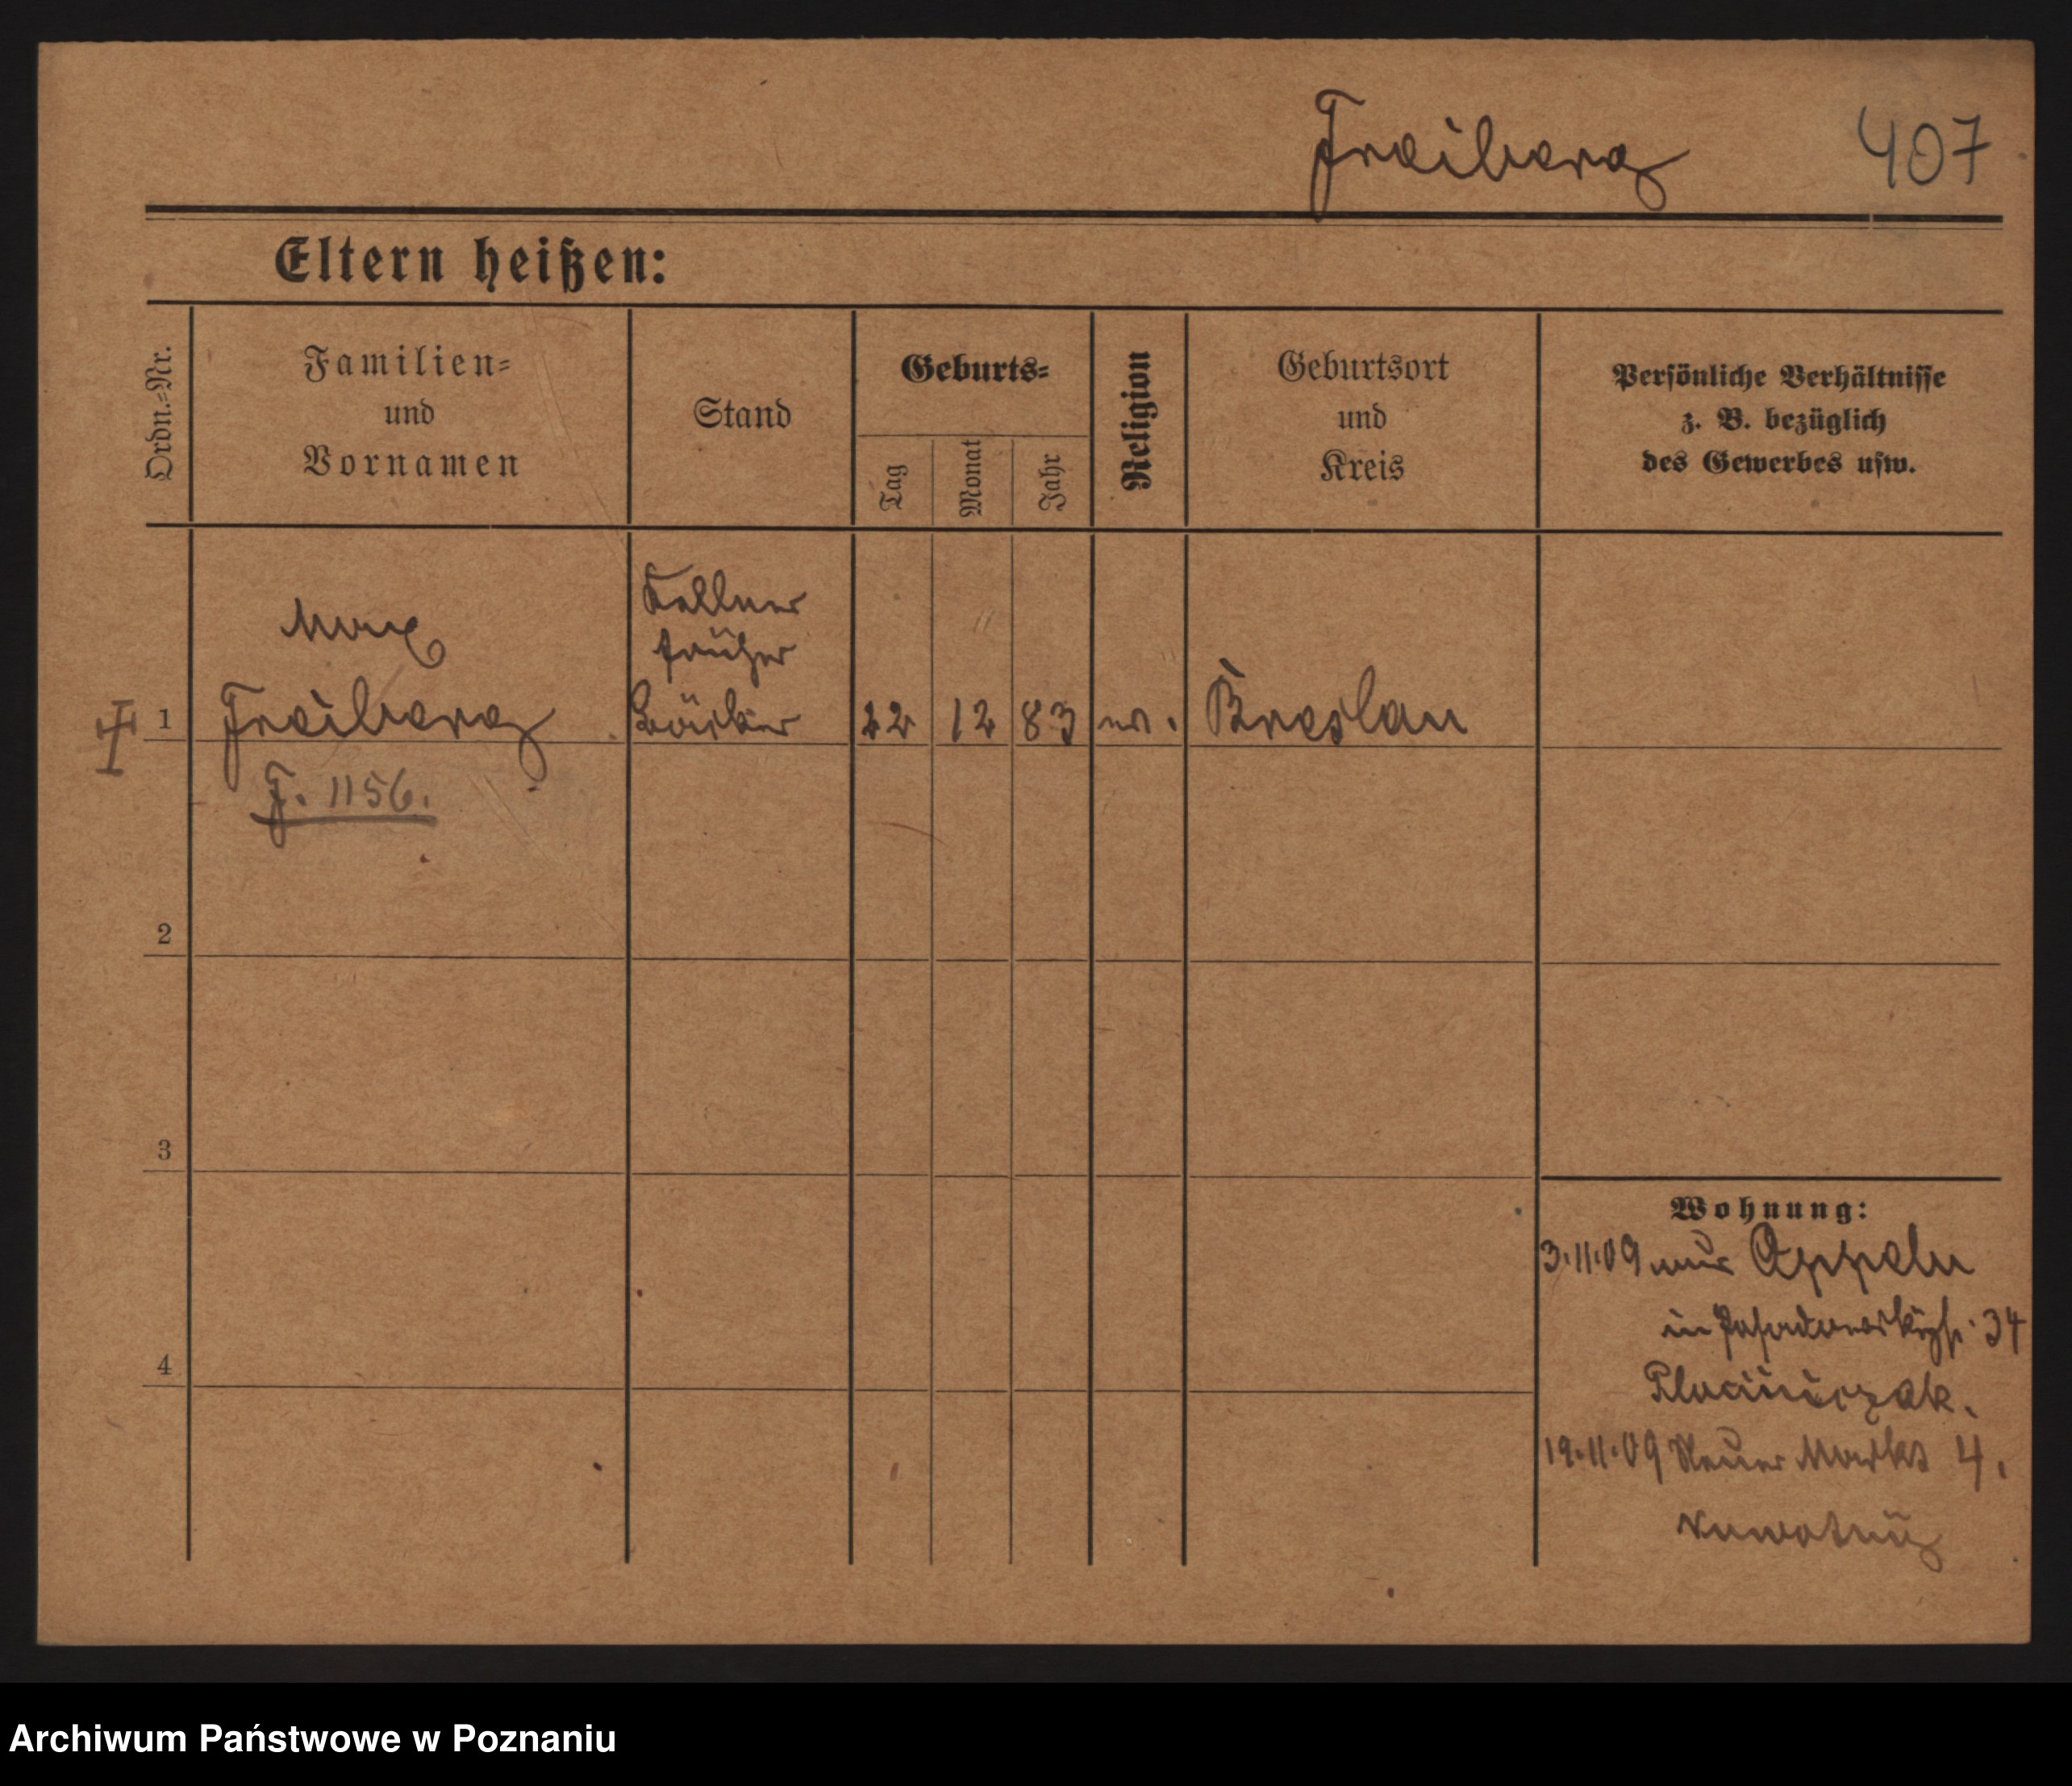 Freiberg 407
Eltern heißen:
Ordn.-Nr.
Familien-
und
Vornamen
Stand
Geburts-
Tag
Monat
Jahr
Religion
Geburtsort
und
Kreis
Persönliche Verhältnisse
z. B. bezüglich
des Gewerbes usw.
Max
Kellner
früher
1 Freiberg Bäcker 22 12 83 ev. Breslau
F. 1156.
2
3
4
Wohnung:
3.11.09 aus Oppeln
in 34
19.11.09 Neuer Markt 4.
Archiwum Państwowe w Poznaniu